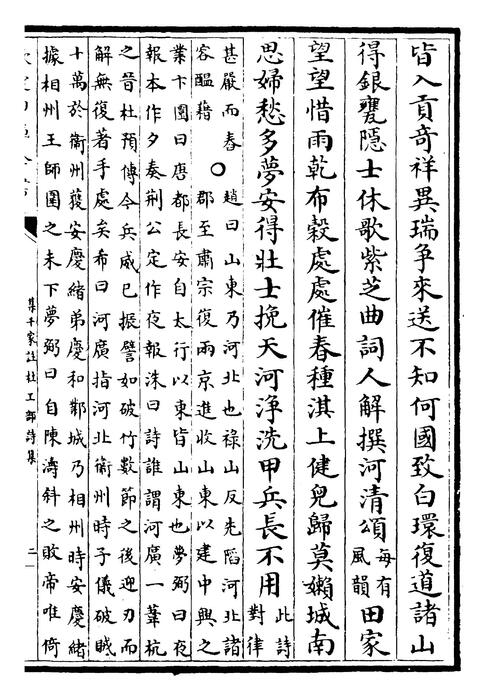 皆入貢奇祥異瑞爭來送不知何國致白環復道諸山
得銀甕隱士休歌紫芝曲詞人解撰河清頌每有風韻田家
望望惜雨乾布穀處處催春種淇上健兒歸莫嬾城南
思婦愁多夢安得壯士挽天河淨洗甲兵長不用此詩對律
甚嚴而春容醖藉○趙曰山東乃河北也祿山反先䧟河北諸
郡至肅宗復兩京進收山東以建中興之
業卞圜曰唐都長安自太行以東皆山東也夢弼曰夜
報本作夕奏荆公定作夜報洙曰詩誰謂河廣一葦杭
之晉杜預傳今兵威已振譬如破竹數節之後迎刃而
解無復著手處矣希曰河廣指河北衞州時子儀破賊
十萬於衞州獲安慶緒弟慶和鄴城乃相州時安慶緒
據相州王師圍之未下夢弼曰自陳濤斜之敗帝唯倚
集千家註杜工部詩集
二